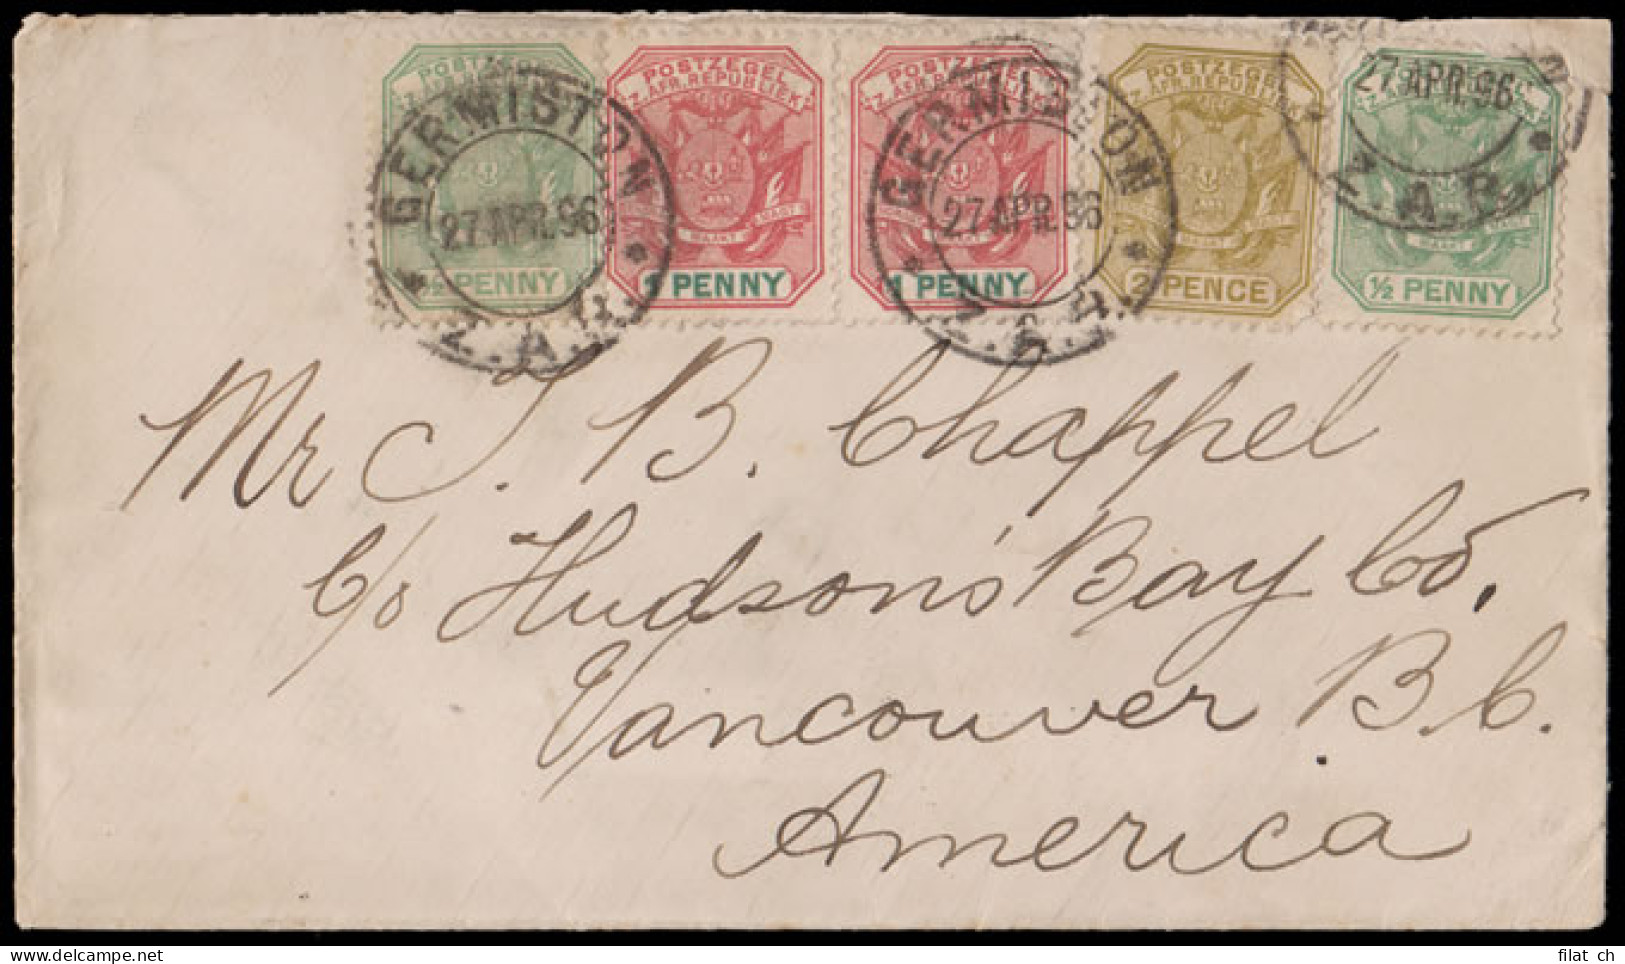 POSTZEGEL
½ PENNY
POSTZEGEL
Z. AFR. REPUBLIEK
1 PENNY
POSTZEGEL
Z. AFR. REPUBLIEK
1 PENNY
POSTZEGEL
Z. AFR. REPUBLIEK
2 PENCE
½ PENNY
GERMISTON
27 APR. 96
Z.A.R.
GERMISTON
27 APR. 96
Z.A.R.
27 APR. 96
Z.A.R.
Mr J. B. Chappel
c/o Hudson's Bay Co,
Vancouver B.C.
America
filat ch